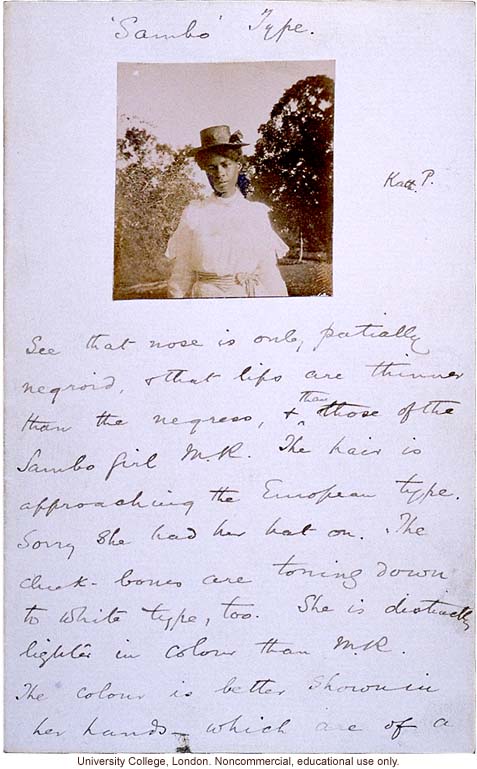 'Sambo' Type.
Kath P.
See that nose is only partially
negroid, & that lips are thinner
than the negress, & than those of the
Sambo girl M.R. The hair is
approaching the European type.
Sorry she had her hat on. The
cheek-bones are toning down
to white type, too. She is distinctly
lighter in colour than M.R.
The colour is better shown in
her hands – which are of a
University College, London. Noncommercial, educational use only.